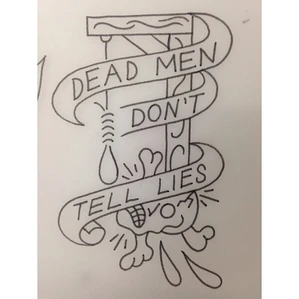 DEAD MEN
DON'T
TELL LIES